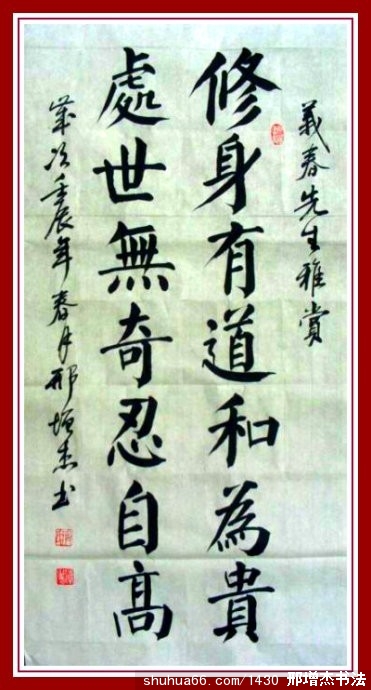 義春先生雅赏
修身有道和為貴
處世無奇忍自高
歲次壬辰年春月邢增杰书
shuhua66.com/1430 邢增杰书法